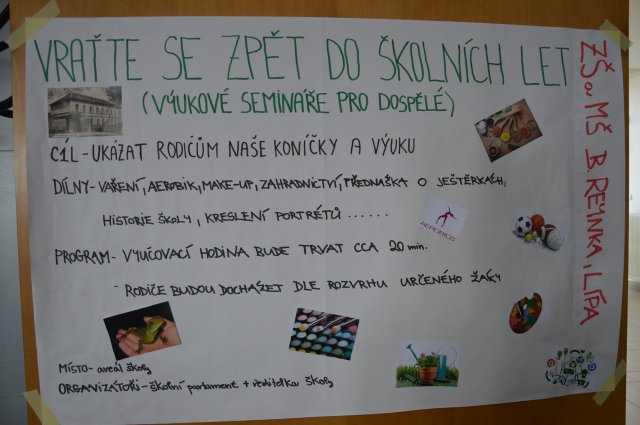 VRAŤTE SE ZPĚT DO ŠKOLNÍCH LET
(VÝUKOVÉ SEMINÁŘE PRO DOSPĚLÉ)
CÍL - UKÁZAT RODIČŮM NAŠE KONÍČKY A VÝUKU
DÍLNY - VAŘENÍ, AEROBIK, MAKE-UP, ZAHRADNICTVÍ, PŘEDNÁŠKA O JEŠTĚRKÁCH,
HISTORIE ŠKOLY, KRESLENÍ PORTRÉTŮ ......
AEROBICS
PROGRAM - VYUČOVACÍ HODINA BUDE TRVAT CCA 20 min.
- RODIČE BUDOU DOCHÁZET DLE ROZVRHU URČENÉHO ŽÁKY
MÍSTO - areál školy
ORGANIZÁTOŘI - školní parlament + ředitelka školy
ZŠ a MŠ B. REYNKA, LÍPA